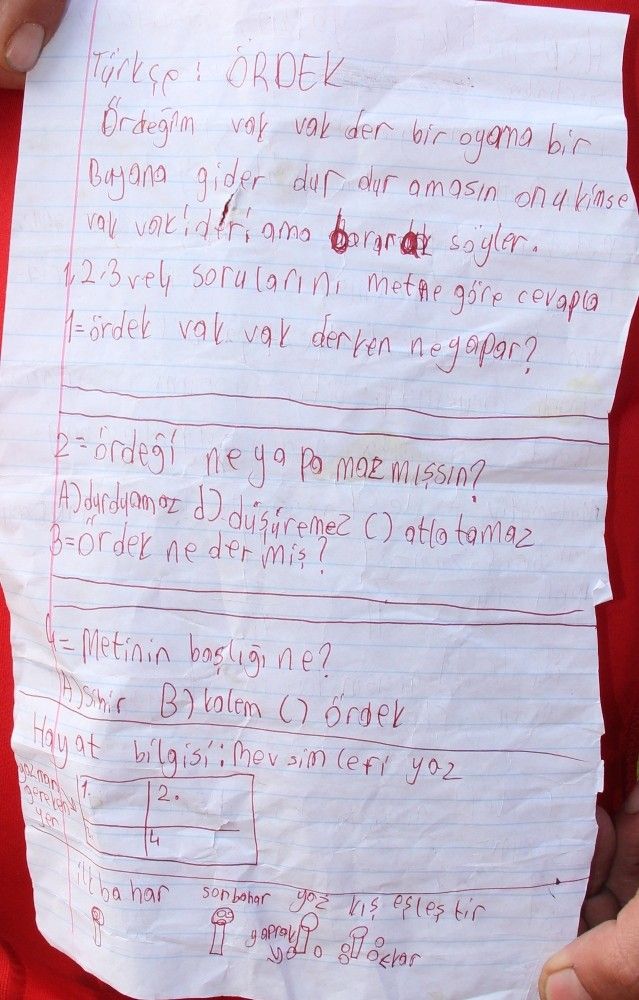 Türkçe: ÖRDEK
Ördeğim vak vak der bir oyama bir
Buyana gider dur dur amasın onu kimse
vak vak ider; ama bararak söyler.
1,2,3 ve 4 sorularını metne göre cevapla
1=ördek vak vak derken ne yapar?
2=ördeği ne yapamazmışsın?
A)durduyamaz d) düşüremez C) atlatamaz
3=Ördek ne dermiş?
4=Metinin başlığı ne?
A)sihir B)kalem C) ördek
Hayat bilgisi: Mevsimleri yaz
yazman gereken yer
1. 2.
3. 4
ilkbahar sonbahar yaz kış eşleştir
yaprak kar